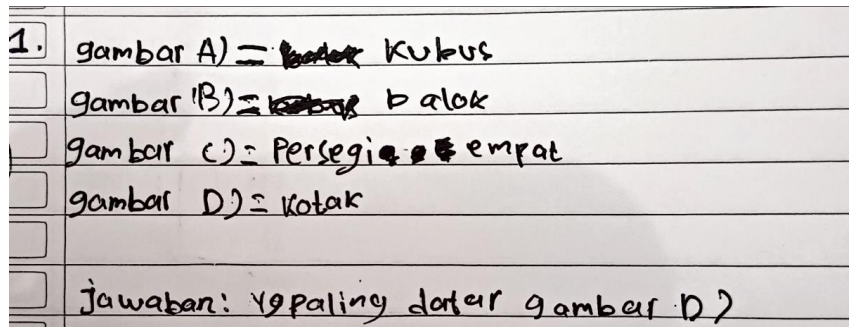 1. gambar A) = Kubus
gambar B) = balok
gambar C) = Persegi empat
gambar D) = kotak
Jawaban: yg paling datar gambar D)